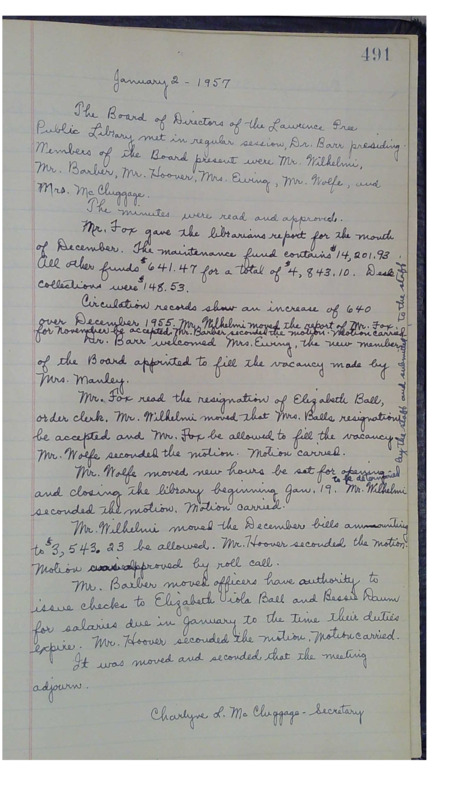 491
January 2 - 1957
The Board of Directors of the Lawrence Free
Public Library met in regular session, Dr. Barr presiding.
Members of the Board present were Mr. Wilhelmi,
Mr. Barber, Mr. Hoover, Mrs. Ewing, Mr. Wolfe, and
Mrs. McCluggage.
The minutes were read and approved.
Mr. Fox gave the librarians report for the month
of December. The maintenance fund contains $14,201.93
All other funds $641.47 for a total of $4,843.10. Desk
collections were $148.53.
Circulation records show an increase of 640
over December 1955. Mr. Wilhelmi moved the report of Mr. Fox
for November be accepted. Mr. Barber seconded the motion. Motion carried
Dr. Barr welcomed Mrs. Ewing, the new member
of the Board appointed to fill the vacancy made by
Mrs. Manley.
Mr. Fox read the resignation of Elizabeth Ball,
order clerk. Mr. Wilhelmi moved that Mrs. Balls resignation
be accepted and Mr. Fox be allowed to fill the vacancy.
Mr. Wolfe seconded the motion. Motion carried.
Mr. Wolfe moved new hours be set for opening
and closing the library beginning Jan. 19. to be determined Mr. Wilhelmi
by the staff and submitted to the staff.
seconded the motion. Motion carried.
Mr. Wilhelmi moved the December bills amounting
to $3,543.23 be allowed. Mr. Hoover seconded the motion.
Motion approved by roll call.
Mr. Barber moved officers have authority to
issue checks to Elizabeth Viola Ball and Bessie Daum
for salaries due in January to the time their duties
expire. Mr. Hoover seconded the motion. Motion carried.
It was moved and seconded that the meeting
adjourn.
Charlyne L. McCluggage - Secretary